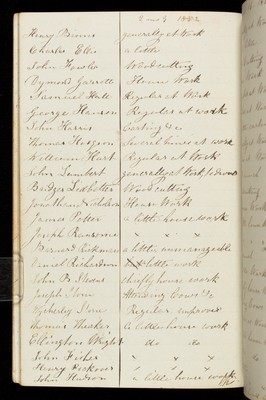 2 mos 1882
Henry Binns generally at Work
Charles Ellis a little
John Fowler Wood cutting
Raymond Garratt House Work
Samuel Hall Regular at Work
George Hanson Regular at work
John Harris Carting &c
Thomas Several times at work
William Hart Regular at Work
John Lambert generally at Work
Bridger Ledbetter Wood cutting
Jonathan House Work
James Potter a little house work
Joseph Ransome " " "
Barnard Rickman a little, unmanageable
Richardson little work
John chiefly house work
Joseph Attending Cows &c
Regular
Thomas Thacker a little house work
Ellington Wright do do
John Fisher " " "
Henry " " "
John Hudson a little house work